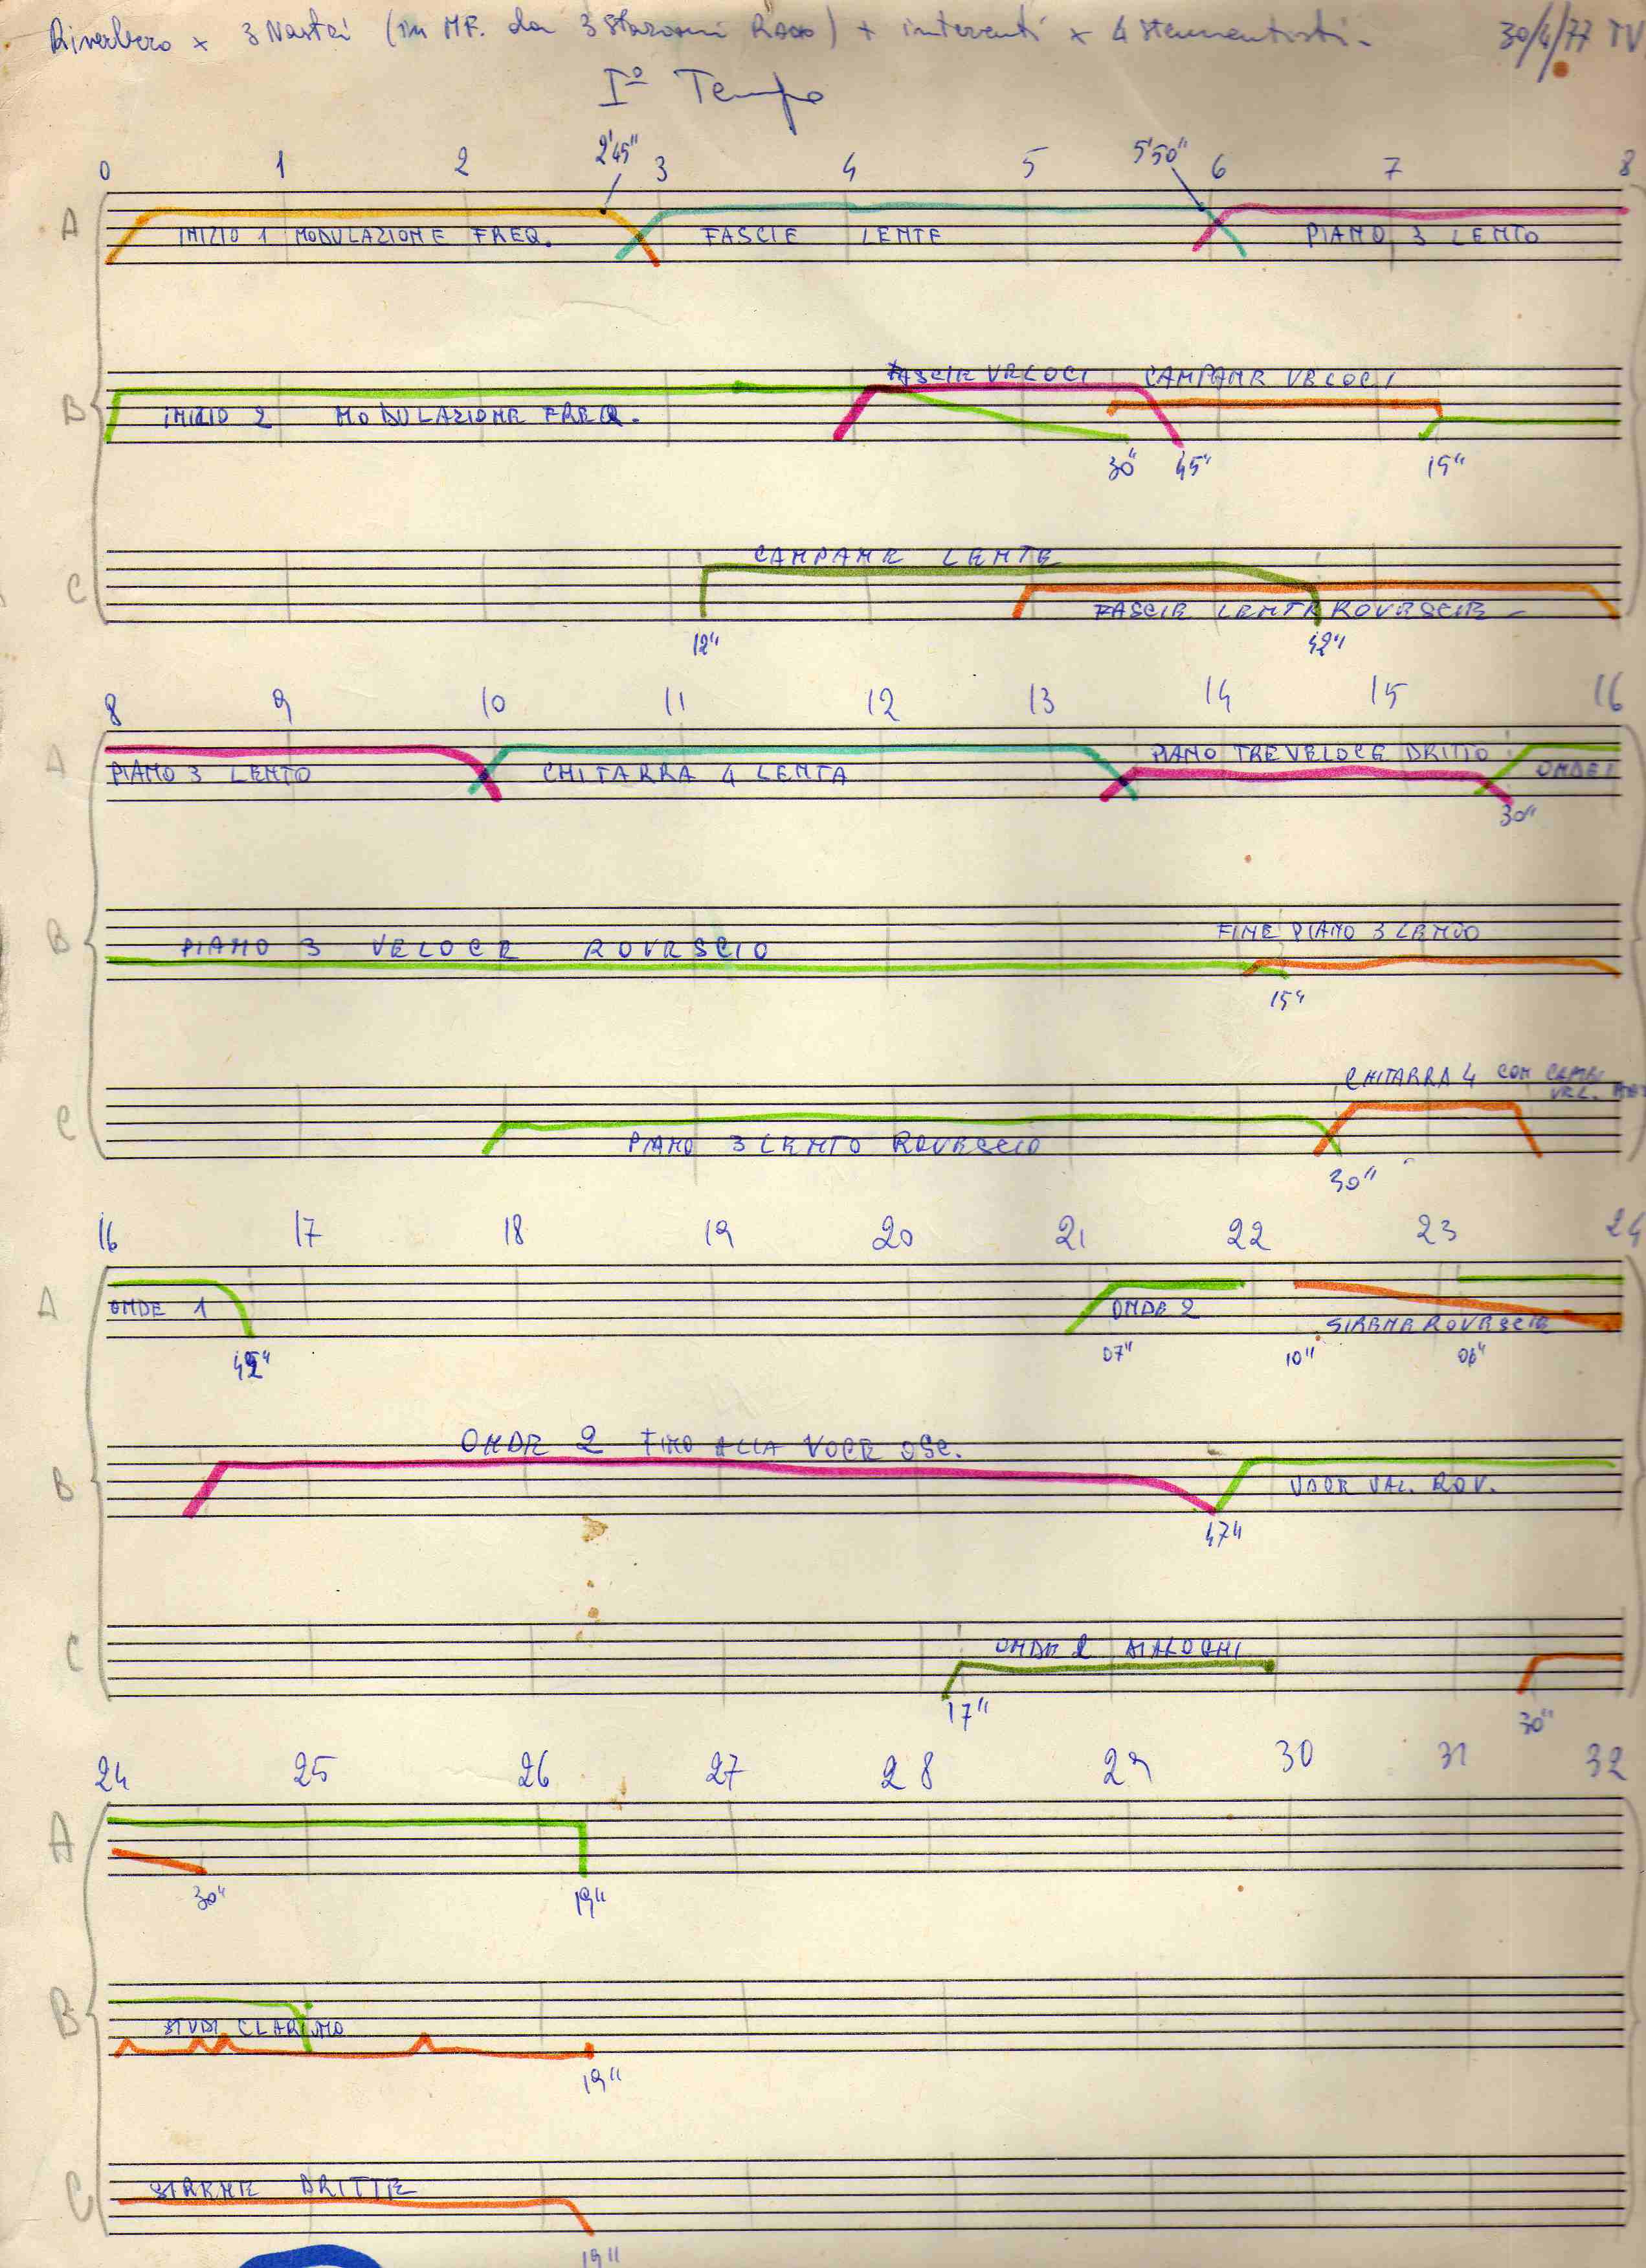 Riverbero x 3 Nastri (in MF. da 3 Stazioni Radio) + interventi x 4 strumentisti - 30/4/77 TV
I° Tempo
0 1 2 2'45" 3 4 5 5'50" 6 7 8
A INIZIO 1 MODULAZIONE FREQ. FASCIE LENTE PIANO 3 LENTO
FASCIE VELOCI CAMPANE VELOCI
B INIZIO 2 MODULAZIONE FREQ.
30" 45" 15"
CAMPANE LENTE
C FASCIE LENTE ROVESCIE -
12" 42"
8 9 10 11 12 13 14 15 16
PIANO TRE VELOCE DRITTO
A PIANO 3 LENTO CHITARRA 4 LENTA ONDE 1
30"
FINE PIANO 3 LENTO
B PIANO 3 VELOCE ROVESCIO
15"
CHITARRA 4 CON CAMBI
VEL.
C PIANO 3 LENTO ROVESCIO
30"
16 17 18 19 20 21 22 23 24
A ONDE 1 ONDE 2 SIRENE ROVESCIE
07" 10" 06"
ONDE 2 FINO ALLA VOCE OSC.
B VOCE VAL. ROV.
47"
ONDE 2 DIALOGHI
C
17" 30"
24 25 26 27 28 29 30 31 32
A
30" 19"
B STUDI CLARINO
19"
SIRENE DRITTE
C
19"